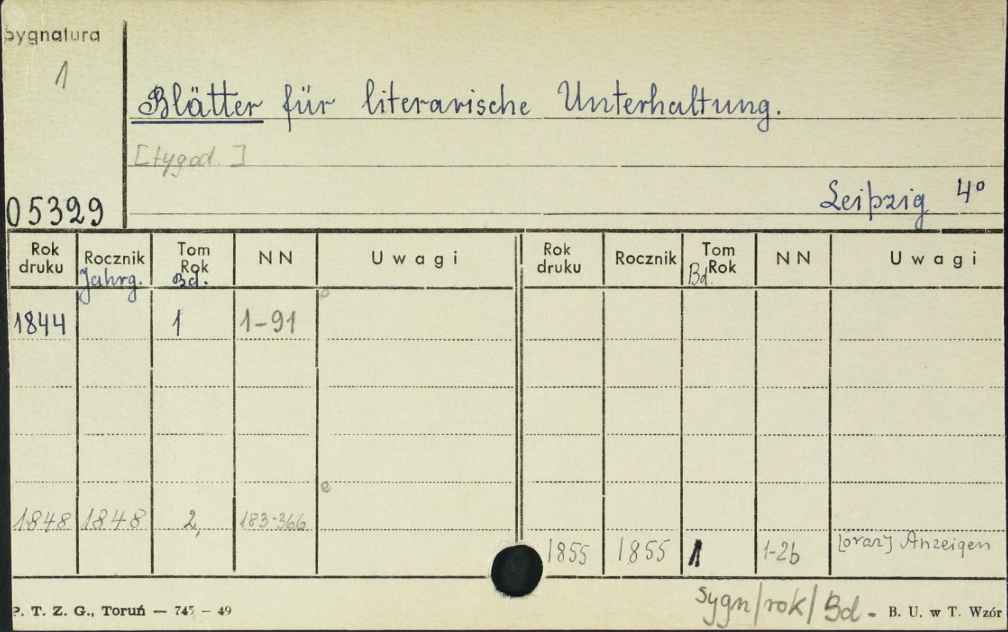 Sygnatura
1
Blätter für literarische Unterhaltung.
[tygod.]
Leipzig 4º
05329
Rok druku Rocznik Jahrg. Tom Rok Bd. NN Uwagi Rok druku Rocznik Tom Bd. Rok NN Uwagi
1844 1 1-91
1848 1848 2, 183-366
1855 1855 1 1-26 [oraz] Anzeigen
P. T. Z. G., Toruń — 745 — 49
sygn/rok/Bd -
B. U. w T. Wzór